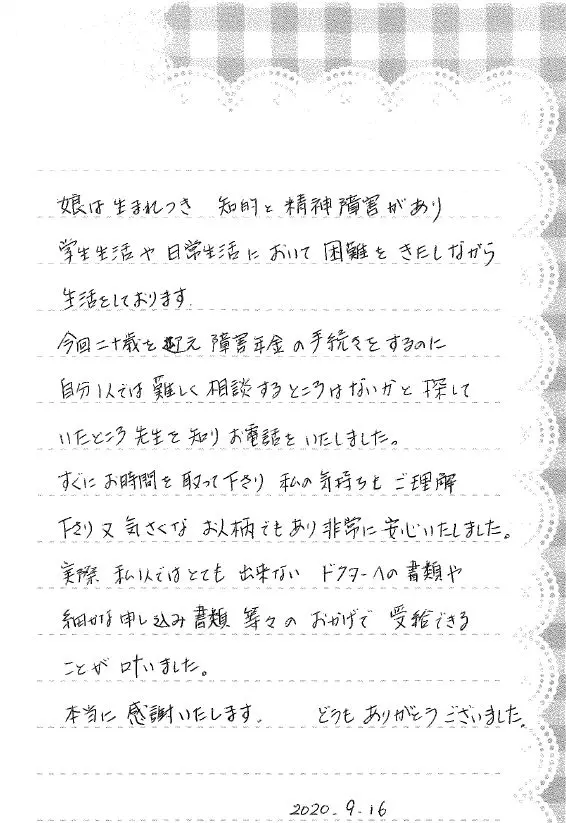 娘は生まれつき 知的と精神障害があり
学生生活や日常生活において困難をきたしながら
生活をしております.
今回二十歳を迎え 障害年金の手続きをするのに
自分1人では難しく相談するところはないかと探して
いたところ先生を知りお電話をいたしました。
すぐにお時間を取って下さり 私の気持ちもご理解
下さり又気さくなお人柄でもあり非常に安心いたしました。
実際 私1人ではとても出来ない ドクターへの書類や
細かな申し込み書類 等々の おかげで 受給できる
ことが叶いました。
本当に感謝いたします. どうもありがとうございました.
2020.9.16